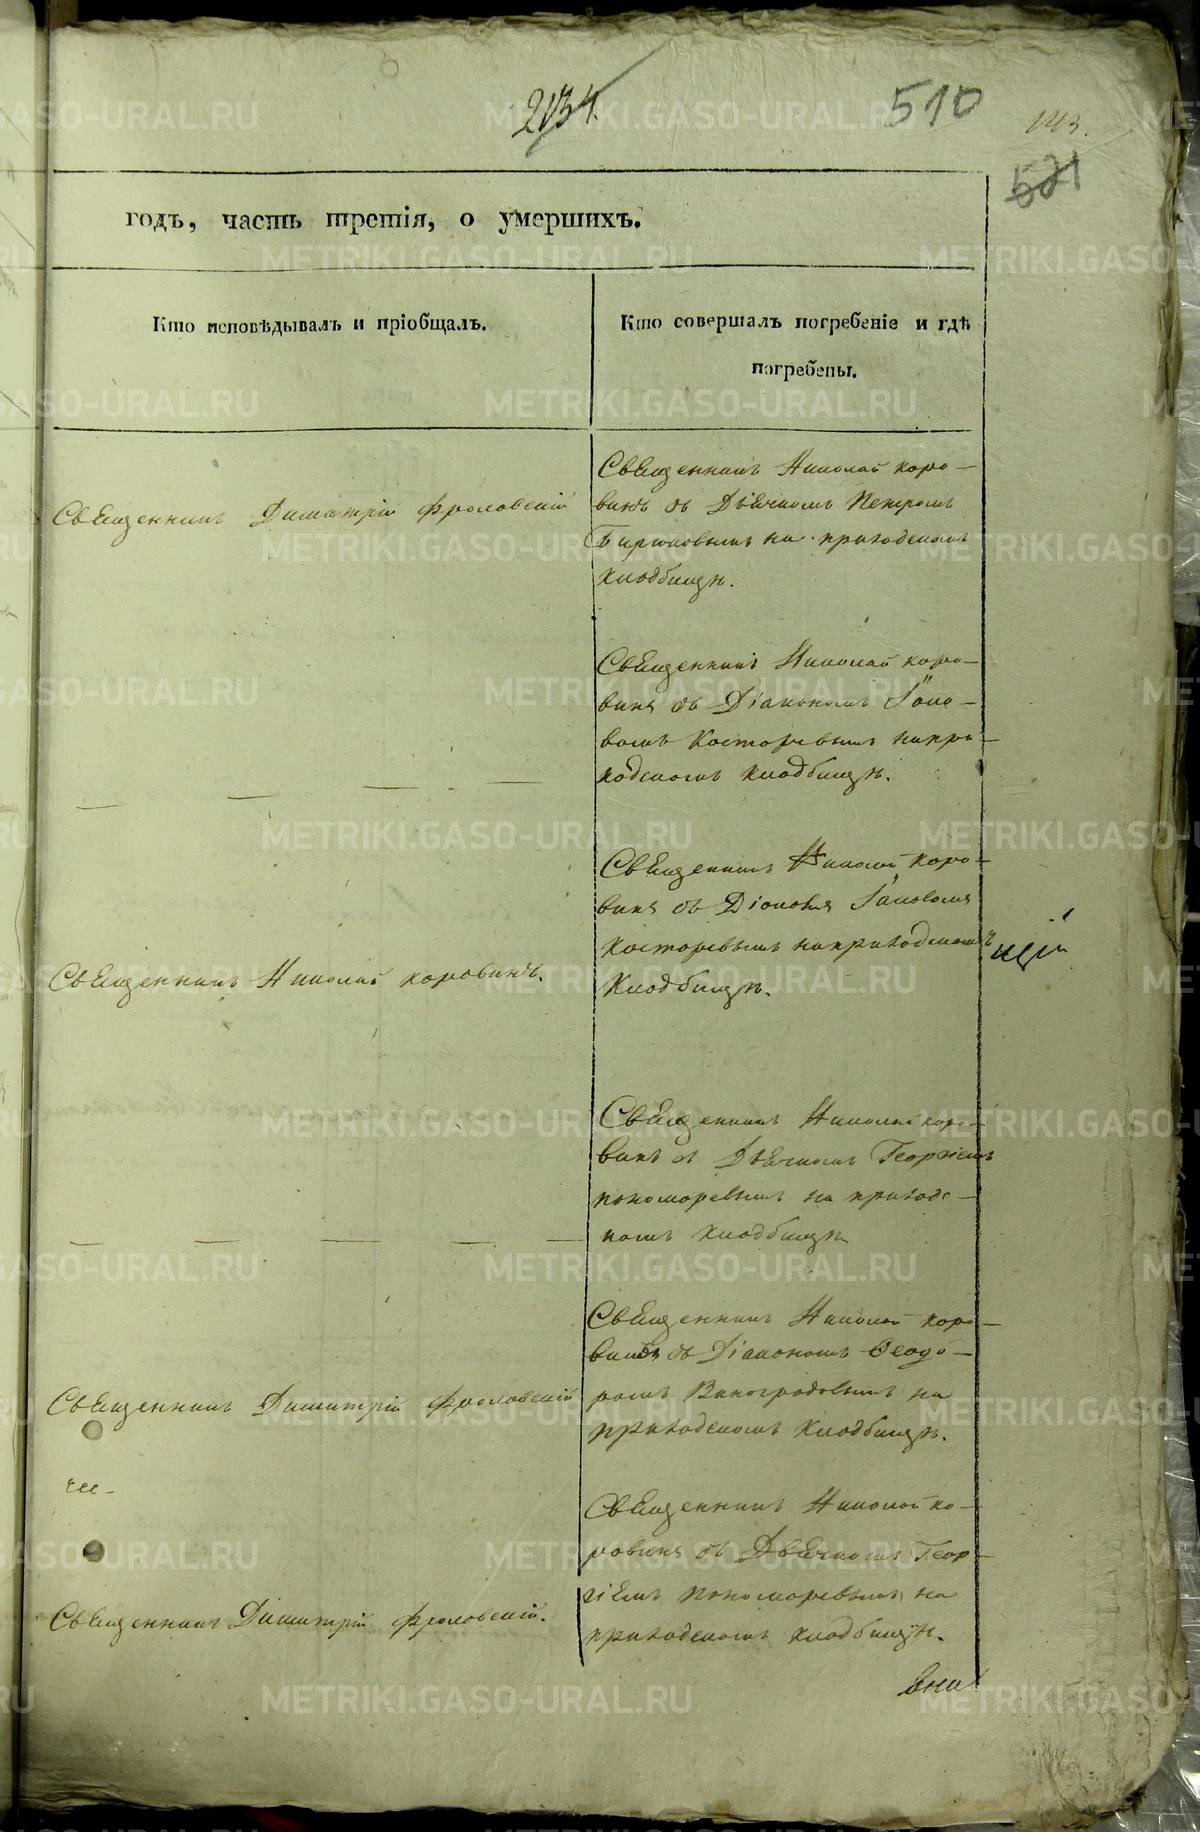 2134.
510
143.
521
годъ, часть третія, о умершихъ.
Кто исповѣдывалъ и пріобщалъ.
Кто совершалъ погребеніе и гдѣ
погребены.
Священникъ Димитрій Фроловскій
Священникъ Николай Коро-
винъ съ Дьячкомъ Петромъ
Бирюковымъ на приходскомъ
кладбищѣ.
Священникъ Николай Коро-
винъ съ Діакономъ Іако-
вомъ Косторевымъ на при-
ходскомъ кладбищѣ.
Священникъ Николай Коровинъ.
Священникъ Николай Коро-
винъ съ Діакономъ Іаковомъ
Косторевымъ на приходскомъ
кладбищѣ.
Священникъ Николай Коро-
винъ съ Дьячкомъ Георгіемъ
Пономоревымъ на приходс-
комъ кладбищѣ
Священникъ Димитрій Фроловскій
Священникъ Николай Коро-
винъ съ Діакономъ Ѳеодо-
ромъ Виноградовымъ на
приходскомъ кладбищѣ.
Священникъ Димитрій Фроловскій.
Священникъ Николай Ко-
ровинъ съ Дьячкомъ Геор-
гіемъ Пономоревымъ на
приходскомъ кладбищѣ.
METRIKI.GASO-URAL.RU